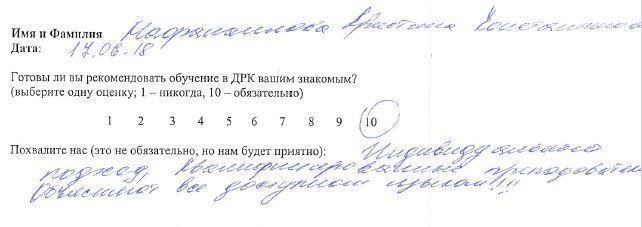 Имя и Фамилия Кристина Константиновна
Дата: 17.06.18
Готовы ли вы рекомендовать обучение в ДРК вашим знакомым?
(выберите одну оценку; 1 – никогда, 10 – обязательно)
1 2 3 4 5 6 7 8 9 10
Похвалите нас (это не обязательно, но нам будет приятно): Индивидуальный
подход, квалифицированные преподаватели
Объясняют все доступным языком!!!